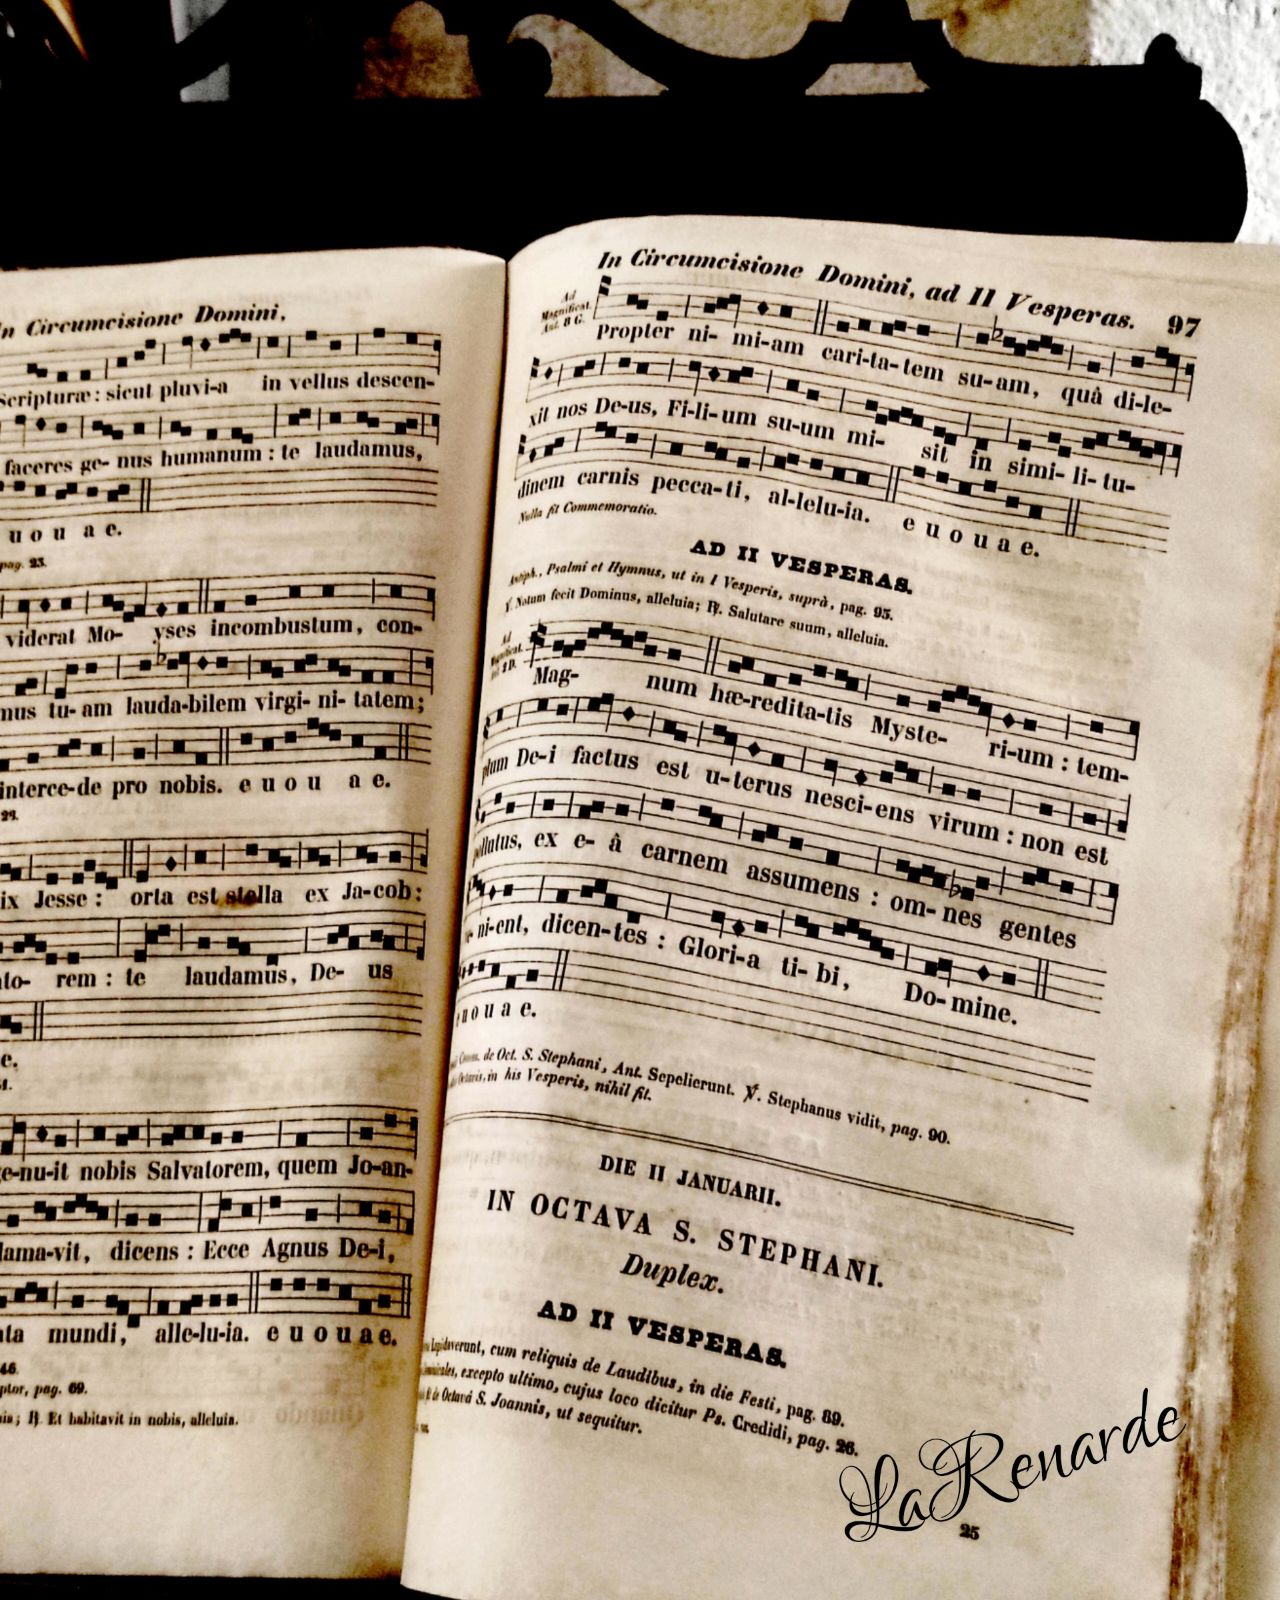 In Circumcisione Domini.
Scripturæ: sicut pluvi-a in vellus descen-
faceres ge- nus humanum : te laudamus,
u o u a e.
pag. 23.
viderat Mo- yses incombustum, con-
tu- am lauda-bilem virgi- ni- tatem;
interce-de pro nobis. e u o u a e.
Jesse : orta est stella ex Ja-cob:
rem : te laudamus, De- us
e.
ge-nu-it nobis Salvatorem, quem Jo-an-
dicens : Ecce Agnus De-i,
mundi, alle-lu-ia. e u o u a e.
pag. 69.
℟. Et habitavit in nobis, alleluia.
In Circumcisione Domini, ad II Vesperas. 97
Ad
Magnificat.
Ant. 8 G.
Propter ni- mi-am cari-ta-tem su-am, quâ di-le-
xit nos De-us, Fi-li-um su-um mi- sit in simi-li-tu-
dinem carnis pecca-ti, al-lelu-ia. e u o u a e.
Nulla fit Commemoratio.
AD II VESPERAS.
Antiph., Psalmi et Hymnus, ut in I Vesperis, suprà, pag. 95.
℣. Notum fecit Dominus, alleluia; ℟. Salutare suum, alleluia.
Ad
Magnificat.
Mag- num hæ-redita-tis Myste- ri-um : tem-
De-i factus est u-terus nesci-ens virum : non est
ex e- â carnem assumens : om-nes gentes
ni-ent, dicen-tes : Glori-a ti- bi, Do-mine.
u o u a e.
de Oct. S. Stephani, Ant. Sepelierunt. ℣. Stephanus vidit, pag. 90.
in his Vesperis, nihil fit.
DIE II JANUARII.
IN OCTAVA S. STEPHANI.
Duplex.
AD II VESPERAS.
cum reliquis de Laudibus, in die Festi, pag. 89.
excepto ultimo, cujus loco dicitur Ps. Credidi, pag. 26.
de Octavâ S. Joannis, ut sequitur.
LaRenarde
25